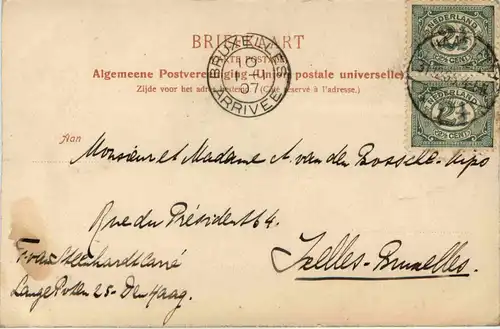 BRIEFKAART
CARTE POSTALE
Algemeene Postvereeniging (Union postale universelle)
Zijde voor het adres bestemd (Côté réservé à l'adresse.)
BRUXELLES
10
07
ARRIVÉE
NEDERLAND
2½
2½ CENT
NEDERLAND
2½
2½ CENT
Aan
Monsieur et Madame A. van den Bossche-
Rue du Président 64.
Ixelles-Bruxelles.
25 - Den Haag